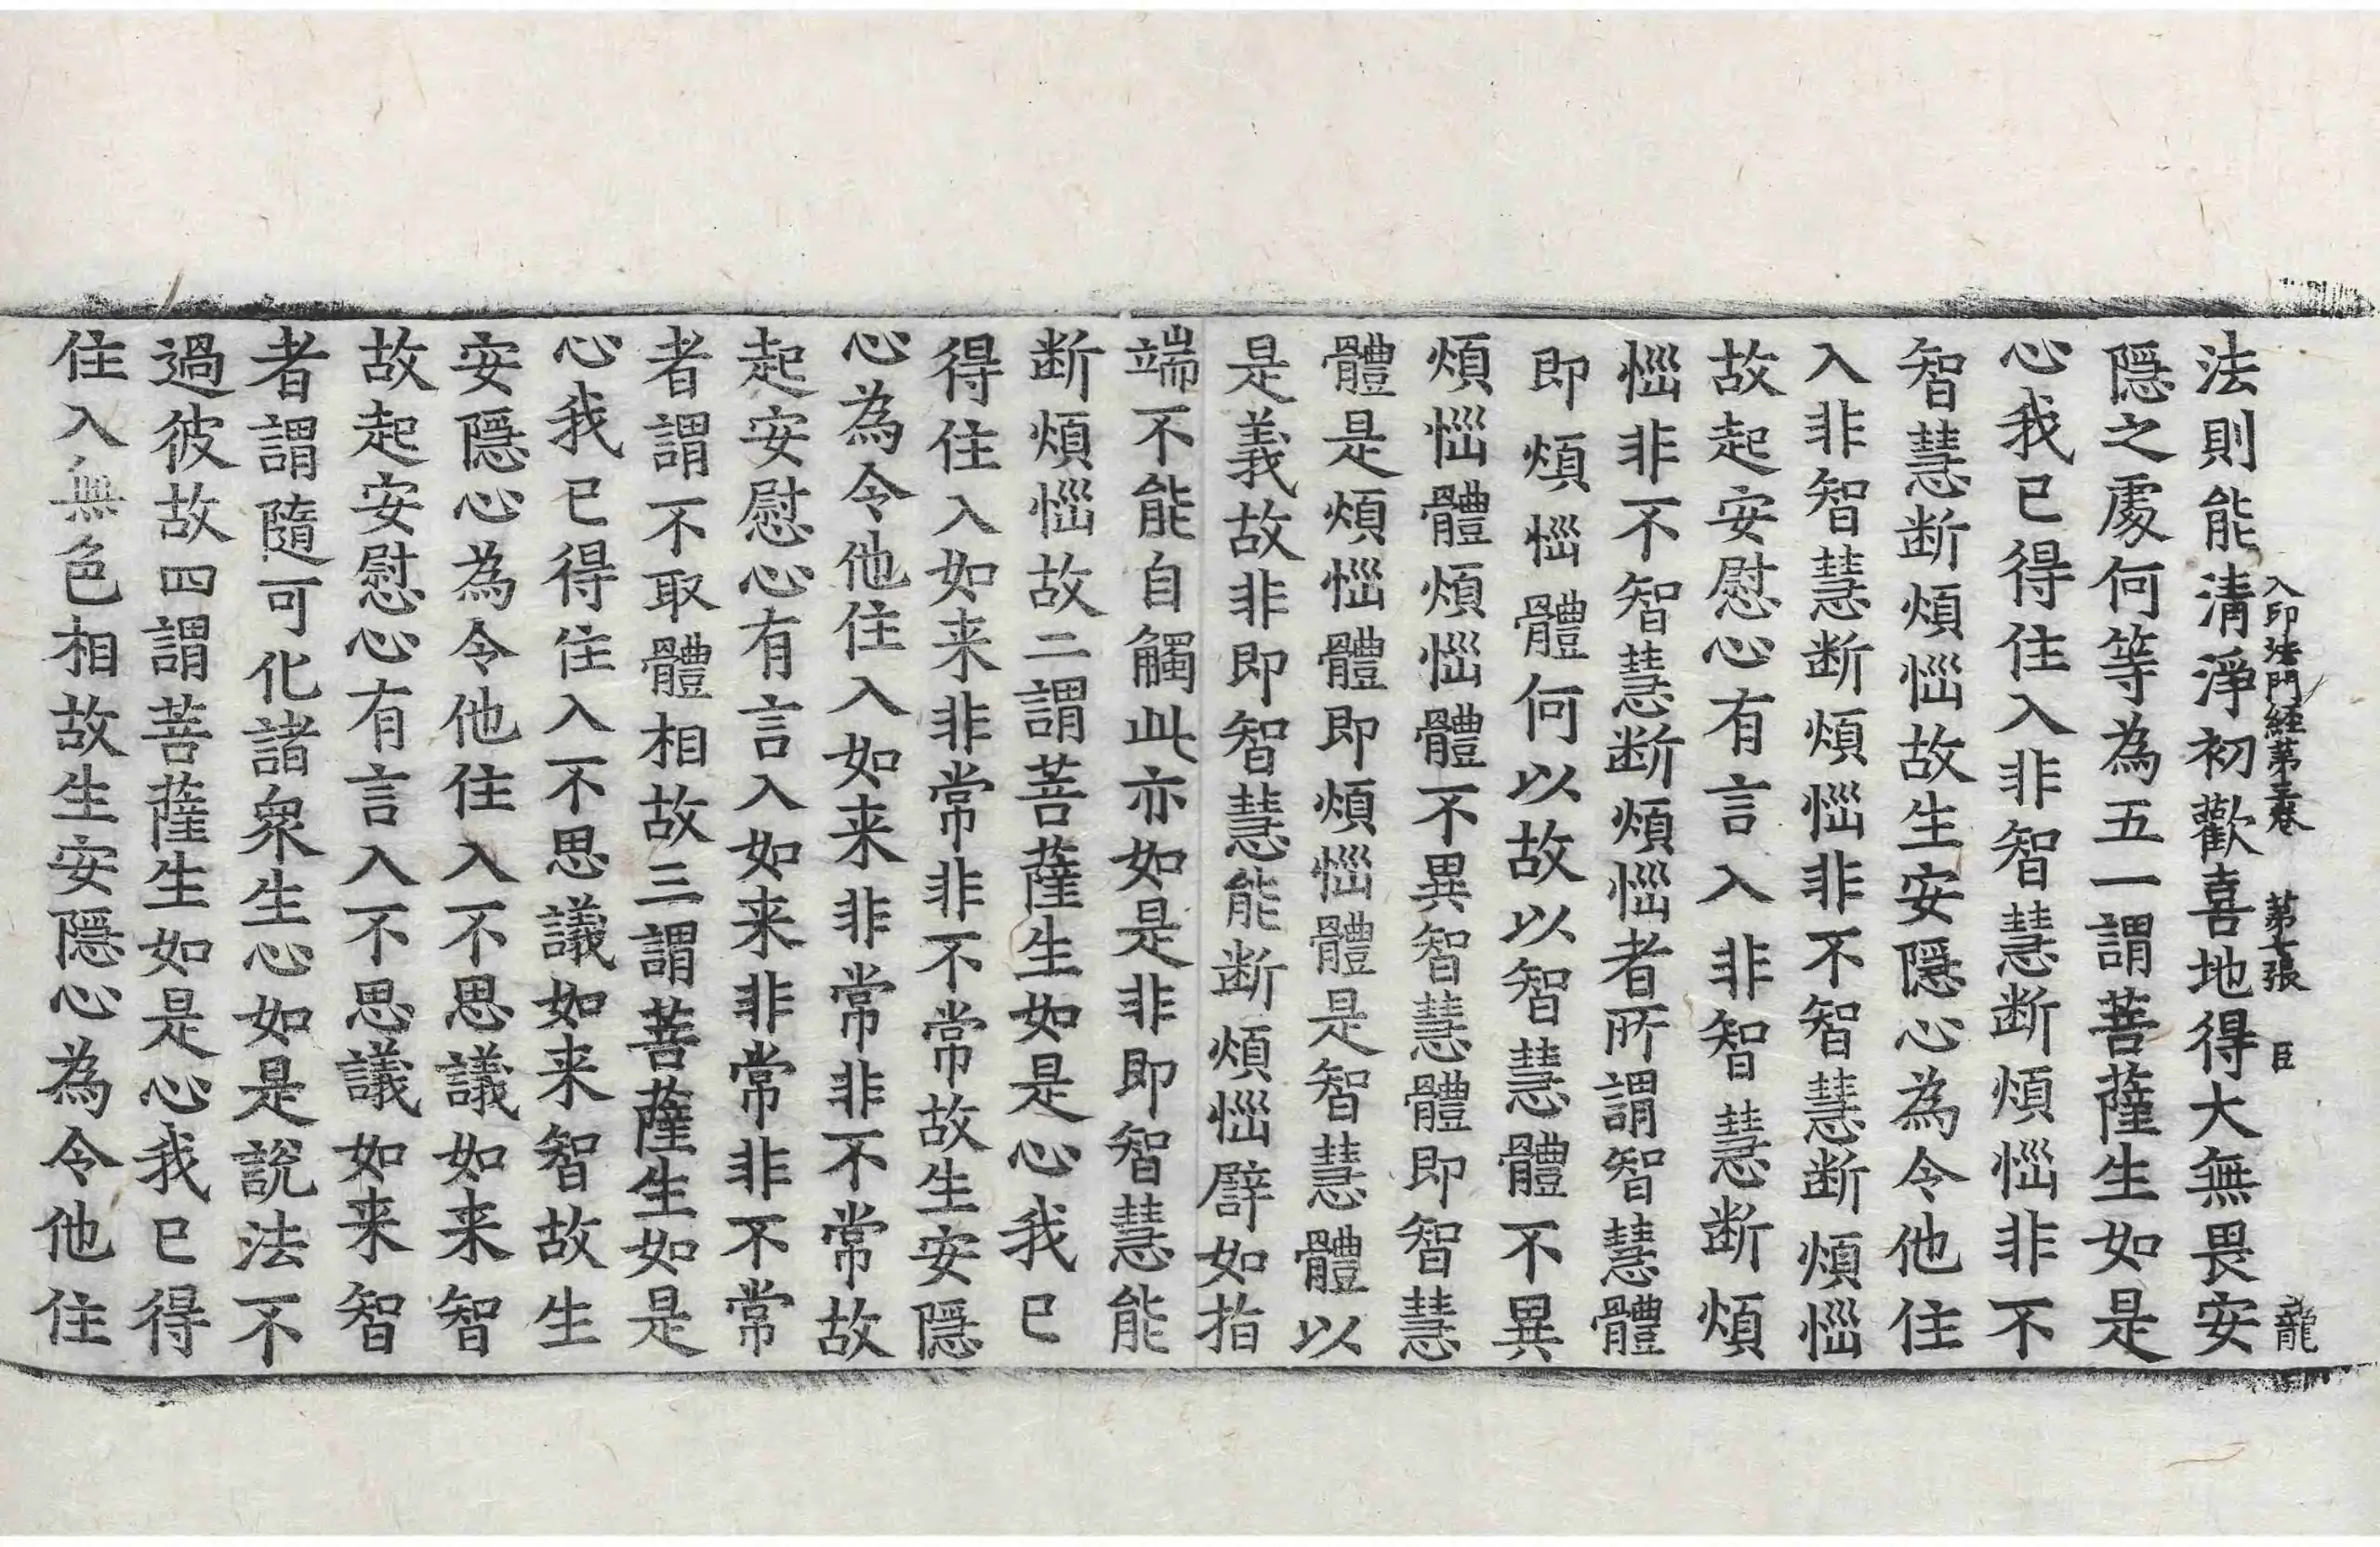 入印法門経第三卷 第七張 臣 龍
法則能清淨初歡喜地得大無畏安
隱之處何等為五一謂菩薩生如是
心我已得住入非智慧断煩惱非不
智慧断煩惱故生安隱心為令他住
入非智慧断煩惱非不智慧断煩惱
故起安慰心有言入非智慧断煩
惱非不智慧断煩惱者所謂智慧體
即煩惱體何以故以智慧體不異
煩惱體煩惱體不異智慧體即智慧
體是煩惱體即煩惱體是智慧體以
是義故非即智慧能断煩惱譬如指
端不能自觸此亦如是非即智慧能
断煩惱故二謂菩薩生如是心我已
得住入如来非常非不常故生安隱
心為令他住入如来非常非不常故
起安慰心有言入如来非常非不常
者謂不取體相故三謂菩薩生如是
心我已得住入不思議如来智故生
安隱心為令他住入不思議如来智
故起安慰心有言入不思議如来智
者謂隨可化諸衆生心如是說法不
過彼故四謂菩薩生如是心我已得
住入無色相故生安隱心為令他住